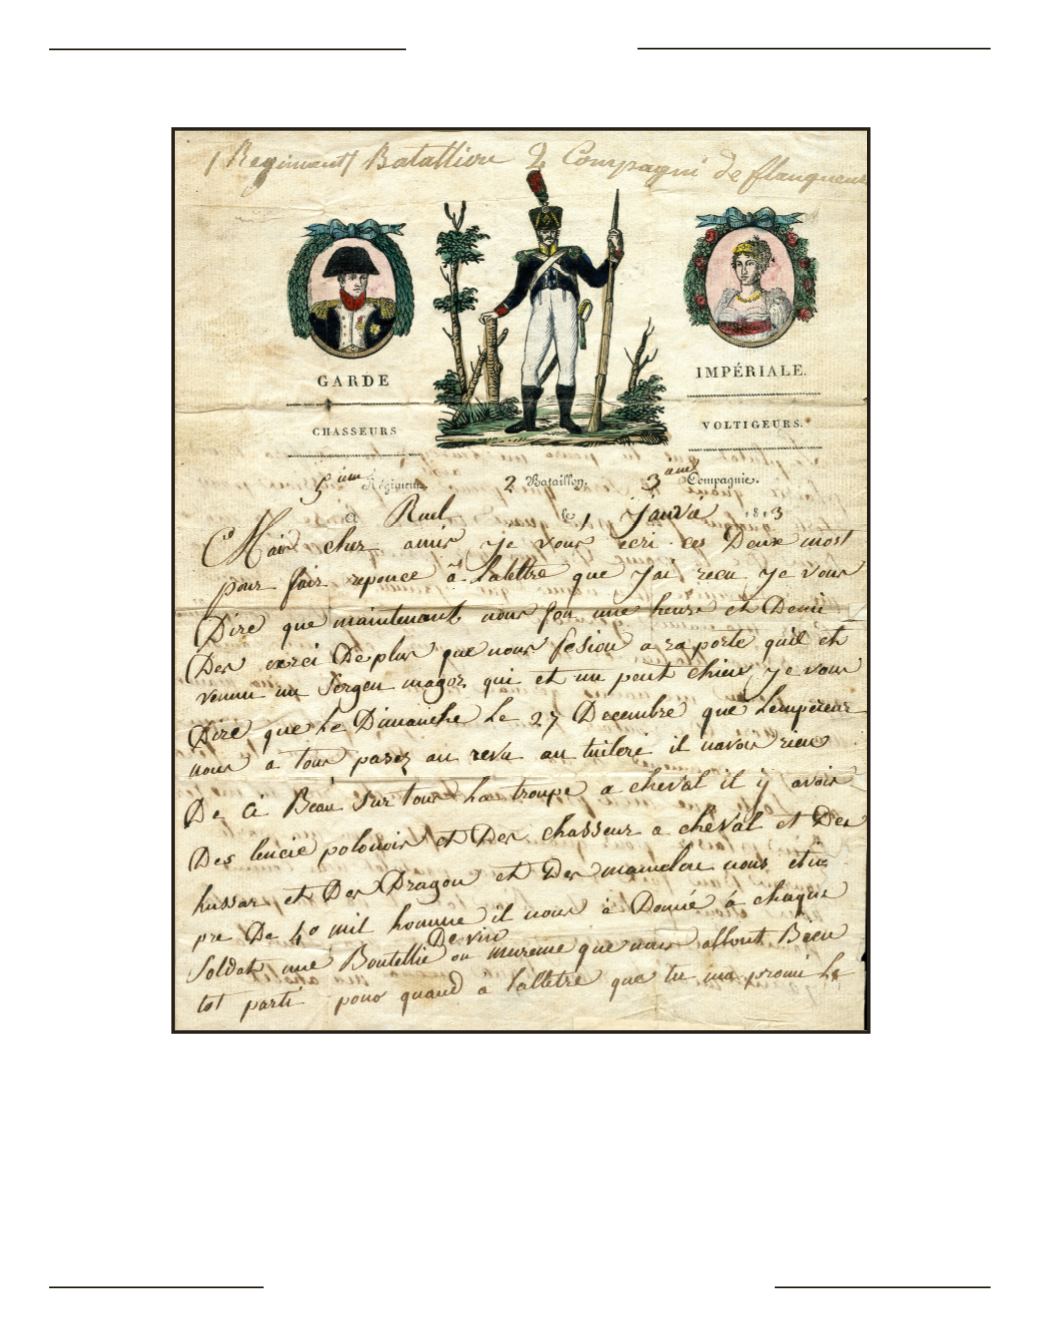 1 Regimant Batallion 2 Compagni de flanqueur
GARDE
IMPÉRIALE.
CHASSEURS
VOLTIGEURS.
5 ieme Régiment, 2 Bataillon, 3 Compagnie.
à Ruel le 1 Janvié 1813
cher amis je vous ecri ces Deux most
pour fair reponce à lalettre que jai recu je vous
Dire que maintenant nous fon une heure et Demi
Des De plus que nous fesion a raporte quil et
venuu un Sergen magor qui et un peut chien je vous
Dire que Le Dimanche Le 27 Decembre que Lempereur
nous a tous pasez au revu au tuileri il navoir rien
De Ci Beau Sur tous La troupe a cheval il y avoir
Des lencié polonois et Des chasseur a cheval et Des
hussar et Des Dragon et Des mamelue nous etio
pre De 40 mil homme il nous à Donné à chaque
Soldat une Boutellie De vin ou mureme que nous allont Bien
tot parti pour quand à lalletre que tu ma promi La